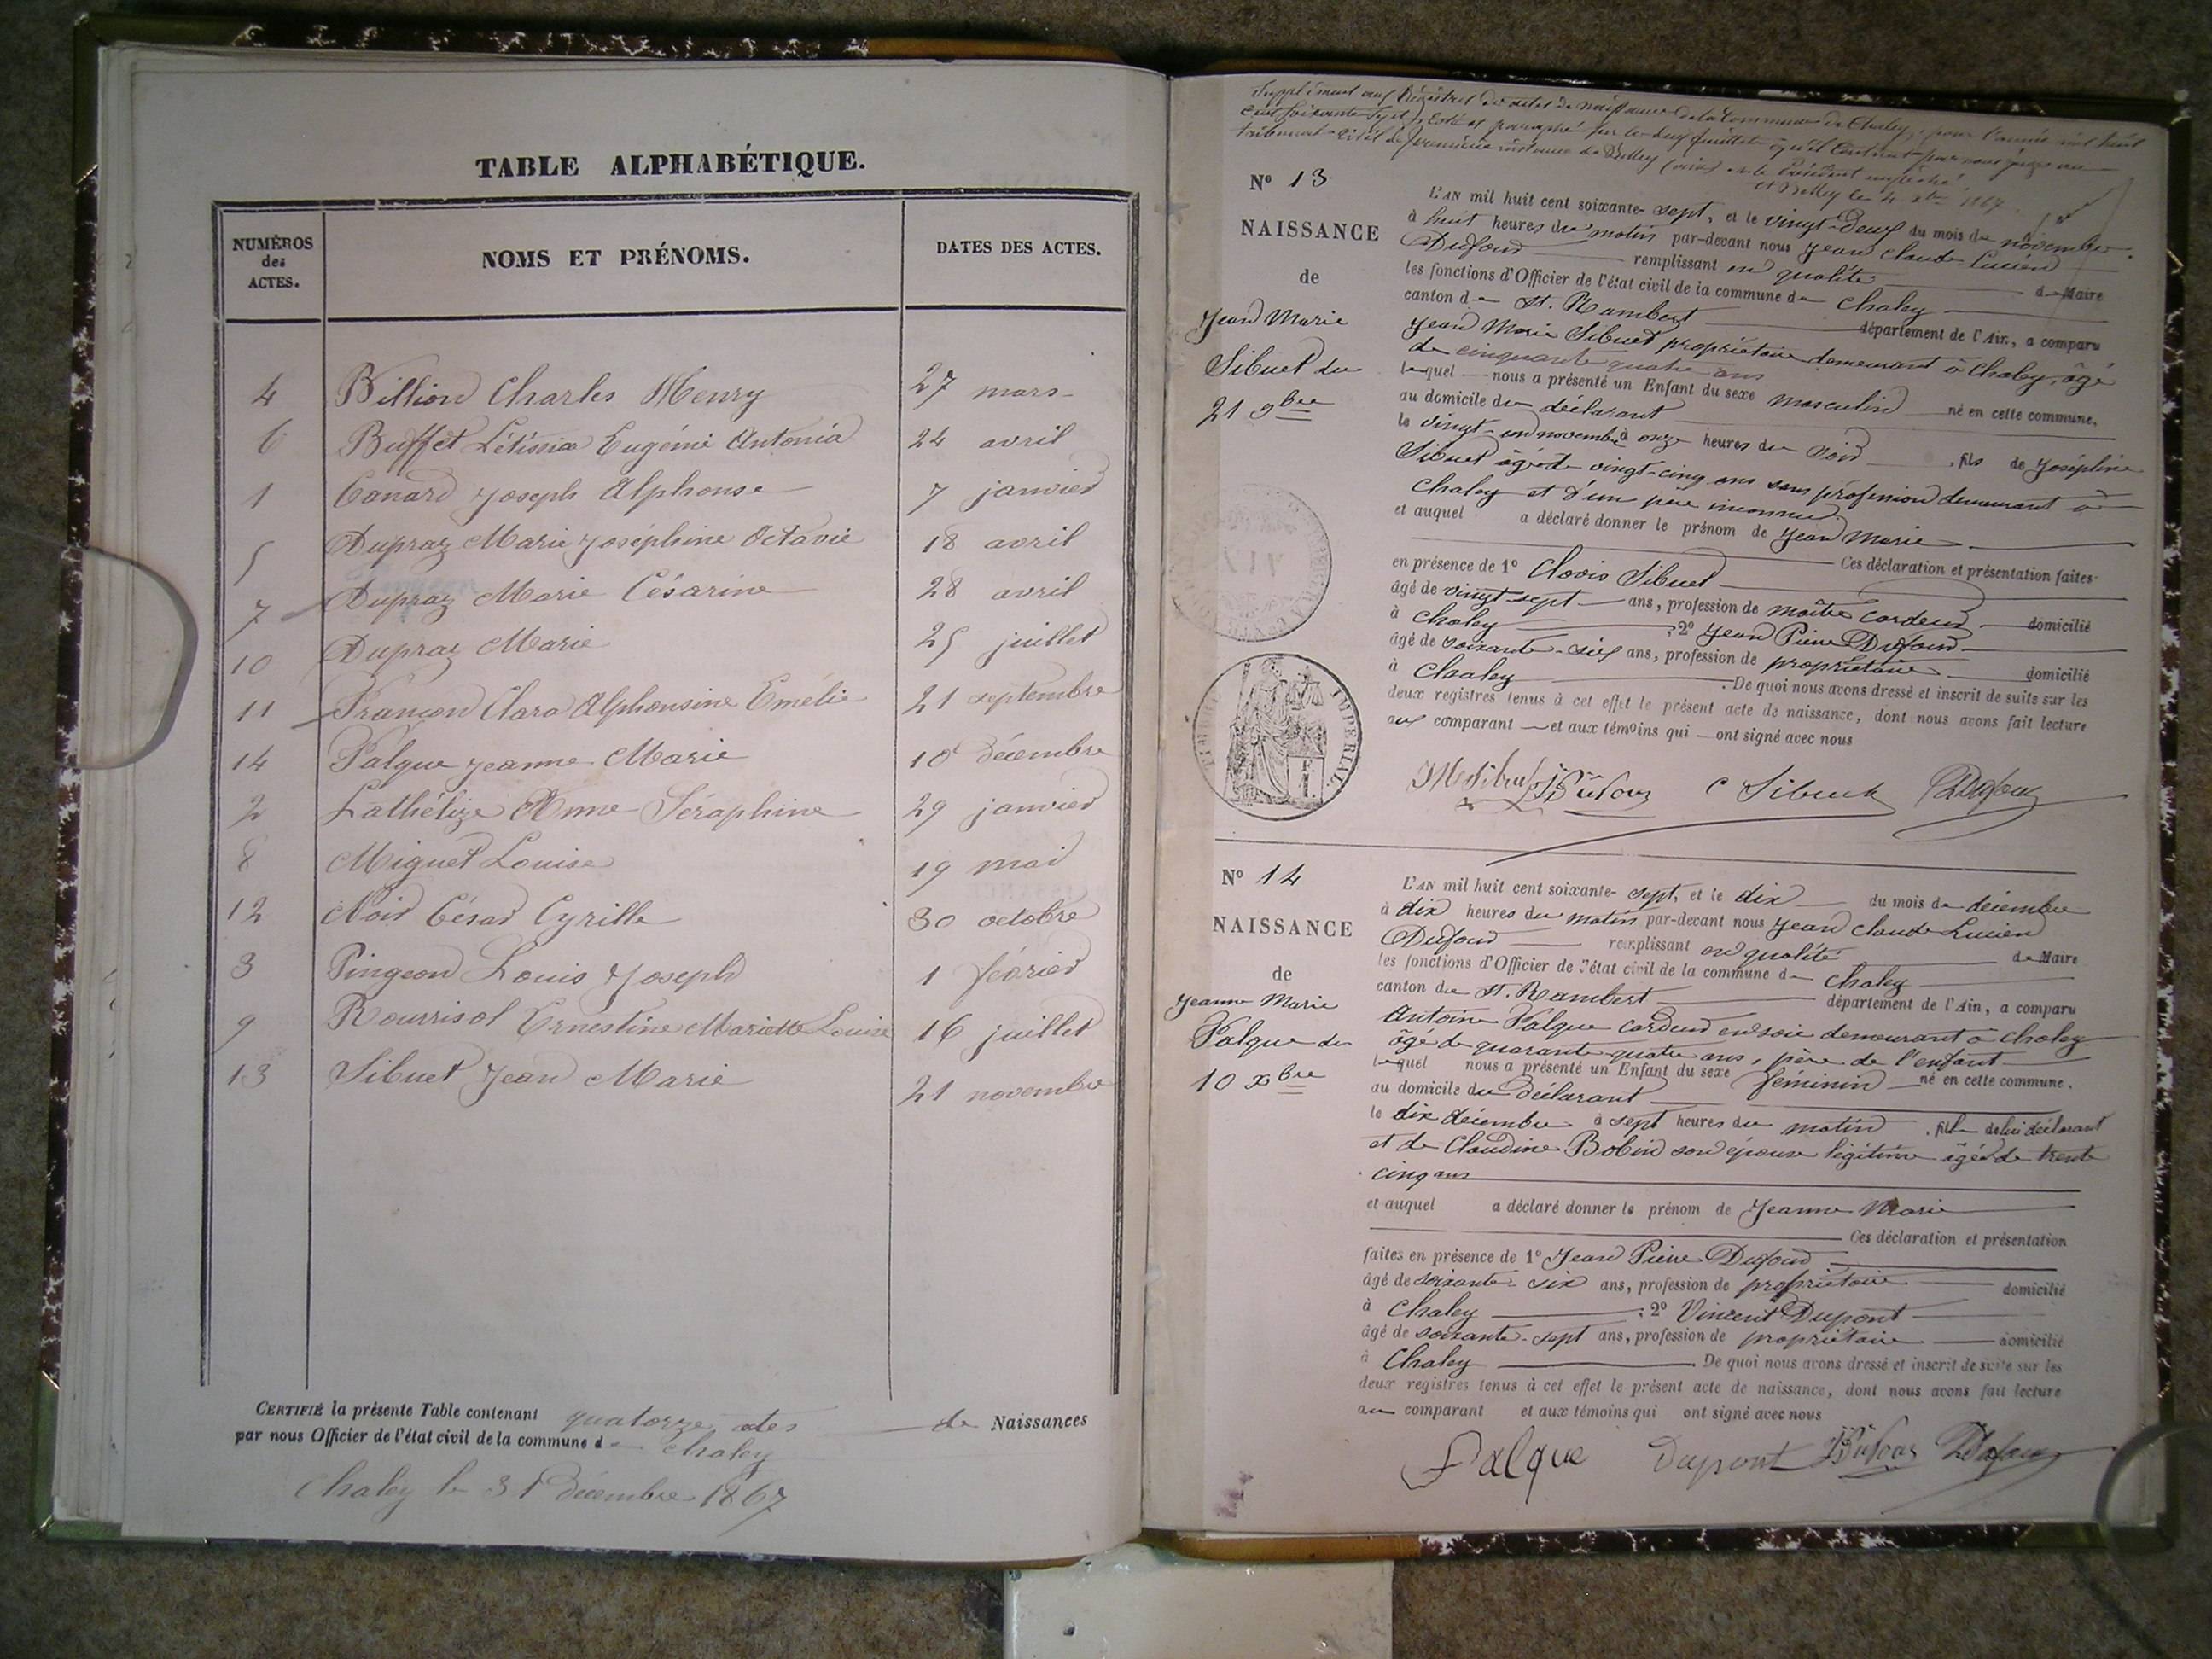 TABLE ALPHABÉTIQUE.
NUMÉROS des ACTES.
NOMS ET PRÉNOMS.
DATES DES ACTES.
4 Billion Charles Henry 27 mars
6 Buffet Létissia Eugénie Antonia 24 avril
1 Canard Joseph Alphonse 7 janvier
5 Dupraz Marie Joséphine Octavie 18 avril
7 Dupraz Marie Césarine 28 avril
10 Dupraz Marie 25 juillet
11 Françon Clara Alphonsine Emélie 21 septembre
14 Falque Jeanne Marie 10 décembre
2 Lathélize Anne Séraphine 29 janvier
8 Miguet Louise 19 mai
12 Noir César Cyrille 30 octobre
3 Pingeon Louis Joseph 1 février
9 Rourrisol Ernestine Mariette Louise 16 juillet
13 Sibuet Jean Marie 21 novembre
CERTIFIÉ la présente Table contenant quatorze actes de Naissances
par nous Officier de l'état civil de la commune de Chaley
Chaley le 31 décembre 1867
Supplément aux Registres des actes de naissance de la Commune de Chaley, pour l'année mil huit
cent soixante sept, coté et paraphé sur les deux feuillets qu'il contient par nous juge au
tribunal civil de première instance de Belley (ain) le Président empêché
à Belley le 4 xbre 1867
N° 13
NAISSANCE
de
Jean Marie
Sibuet du
21 9bre
L'AN mil huit cent soixante-sept, et le vingt-deux du mois de novembre
à huit heures du matin par-devant nous Jean Claude Lucien
Dufour remplissant en qualité de Maire
les fonctions d'Officier de l'état civil de la commune de Chaley
canton de St. Rambert département de l'Ain, a comparu
Jean Marie Sibuet propriétaire demeurant à Chaley, âgé
de cinquante quatre ans
lequel nous a présenté un Enfant du sexe masculin né en cette commune,
au domicile du déclarant
le vingt-un novembre à onze heures du soir, fils de Joséphine
Sibuet âgée de vingt-cinq ans sans profession demeurant à
Chaley et d'un père inconnu
et auquel a déclaré donner le prénom de Jean Marie
Ces déclaration et présentation faites
en présence de 1° Clovis Sibuet
âgé de vingt-sept ans, profession de maître cardeur domicilié
à Chaley ; 2° Jean Pierre Dufour
âgé de soixante-six ans, profession de propriétaire domicilié
à Chaley. De quoi nous avons dressé et inscrit de suite sur les
deux registres tenus à cet effet le présent acte de naissance, dont nous avons fait lecture
aux comparant et aux témoins qui ont signé avec nous
TIMBRE IMPERIAL
JM Sibuet JP Dufour C Sibuet LDufour
N° 14
NAISSANCE
de
Jeanne Marie
Falque du
10 xbre
L'AN mil huit cent soixante-sept, et le dix du mois de décembre
à dix heures du matin par-devant nous Jean Claude Lucien
Dufour remplissant en qualité de Maire
les fonctions d'Officier de l'état civil de la commune de Chaley
canton de St. Rambert département de l'Ain, a comparu
Antoine Falque cardeur en soie demeurant à Chaley
âgé de quarante quatre ans, père de l'enfant
lequel nous a présenté un Enfant du sexe féminin né en cette commune,
au domicile du déclarant
le dix décembre à sept heures du matin, fille de lui déclarant
et de Claudine Bobin son épouse légitime âgée de trente
cinq ans
et auquel a déclaré donner le prénom de Jeanne Marie
Ces déclaration et présentation
faites en présence de 1° Jean Pierre Dufour
âgé de soixante-six ans, profession de propriétaire domicilié
à Chaley ; 2° Vincent Dupont
âgé de soixante-sept ans, profession de propriétaire domicilié
à Chaley. De quoi nous avons dressé et inscrit de suite sur les
deux registres tenus à cet effet le présent acte de naissance, dont nous avons fait lecture
au comparant et aux témoins qui ont signé avec nous
Falque Dupont JP Dufour LDufour